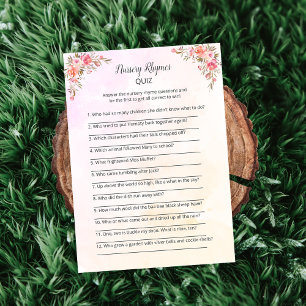 Nursery Rhymes
QUIZ
Answer the nursery rhyme questions and
be the first to get all correct to win!
1. Who had so many children she didn't know what to do?
2. Who tried to put Humpty back together again?
3. Which characters had their tails chopped off?
4. Which animal followed Mary to school?
5. What frightened Miss Muffet?
6. Who came tumbling after Jack?
7. Up above the world so high, like a what in the sky?
8. Who did the dish run away with?
9. How much wool did the baa baa black sheep have?
10. Who or what came out and dried up all the rain?
11. One, two buckle my shoe. What is nine, ten?
12. Who grew a garden with silver bells and cockle shells?